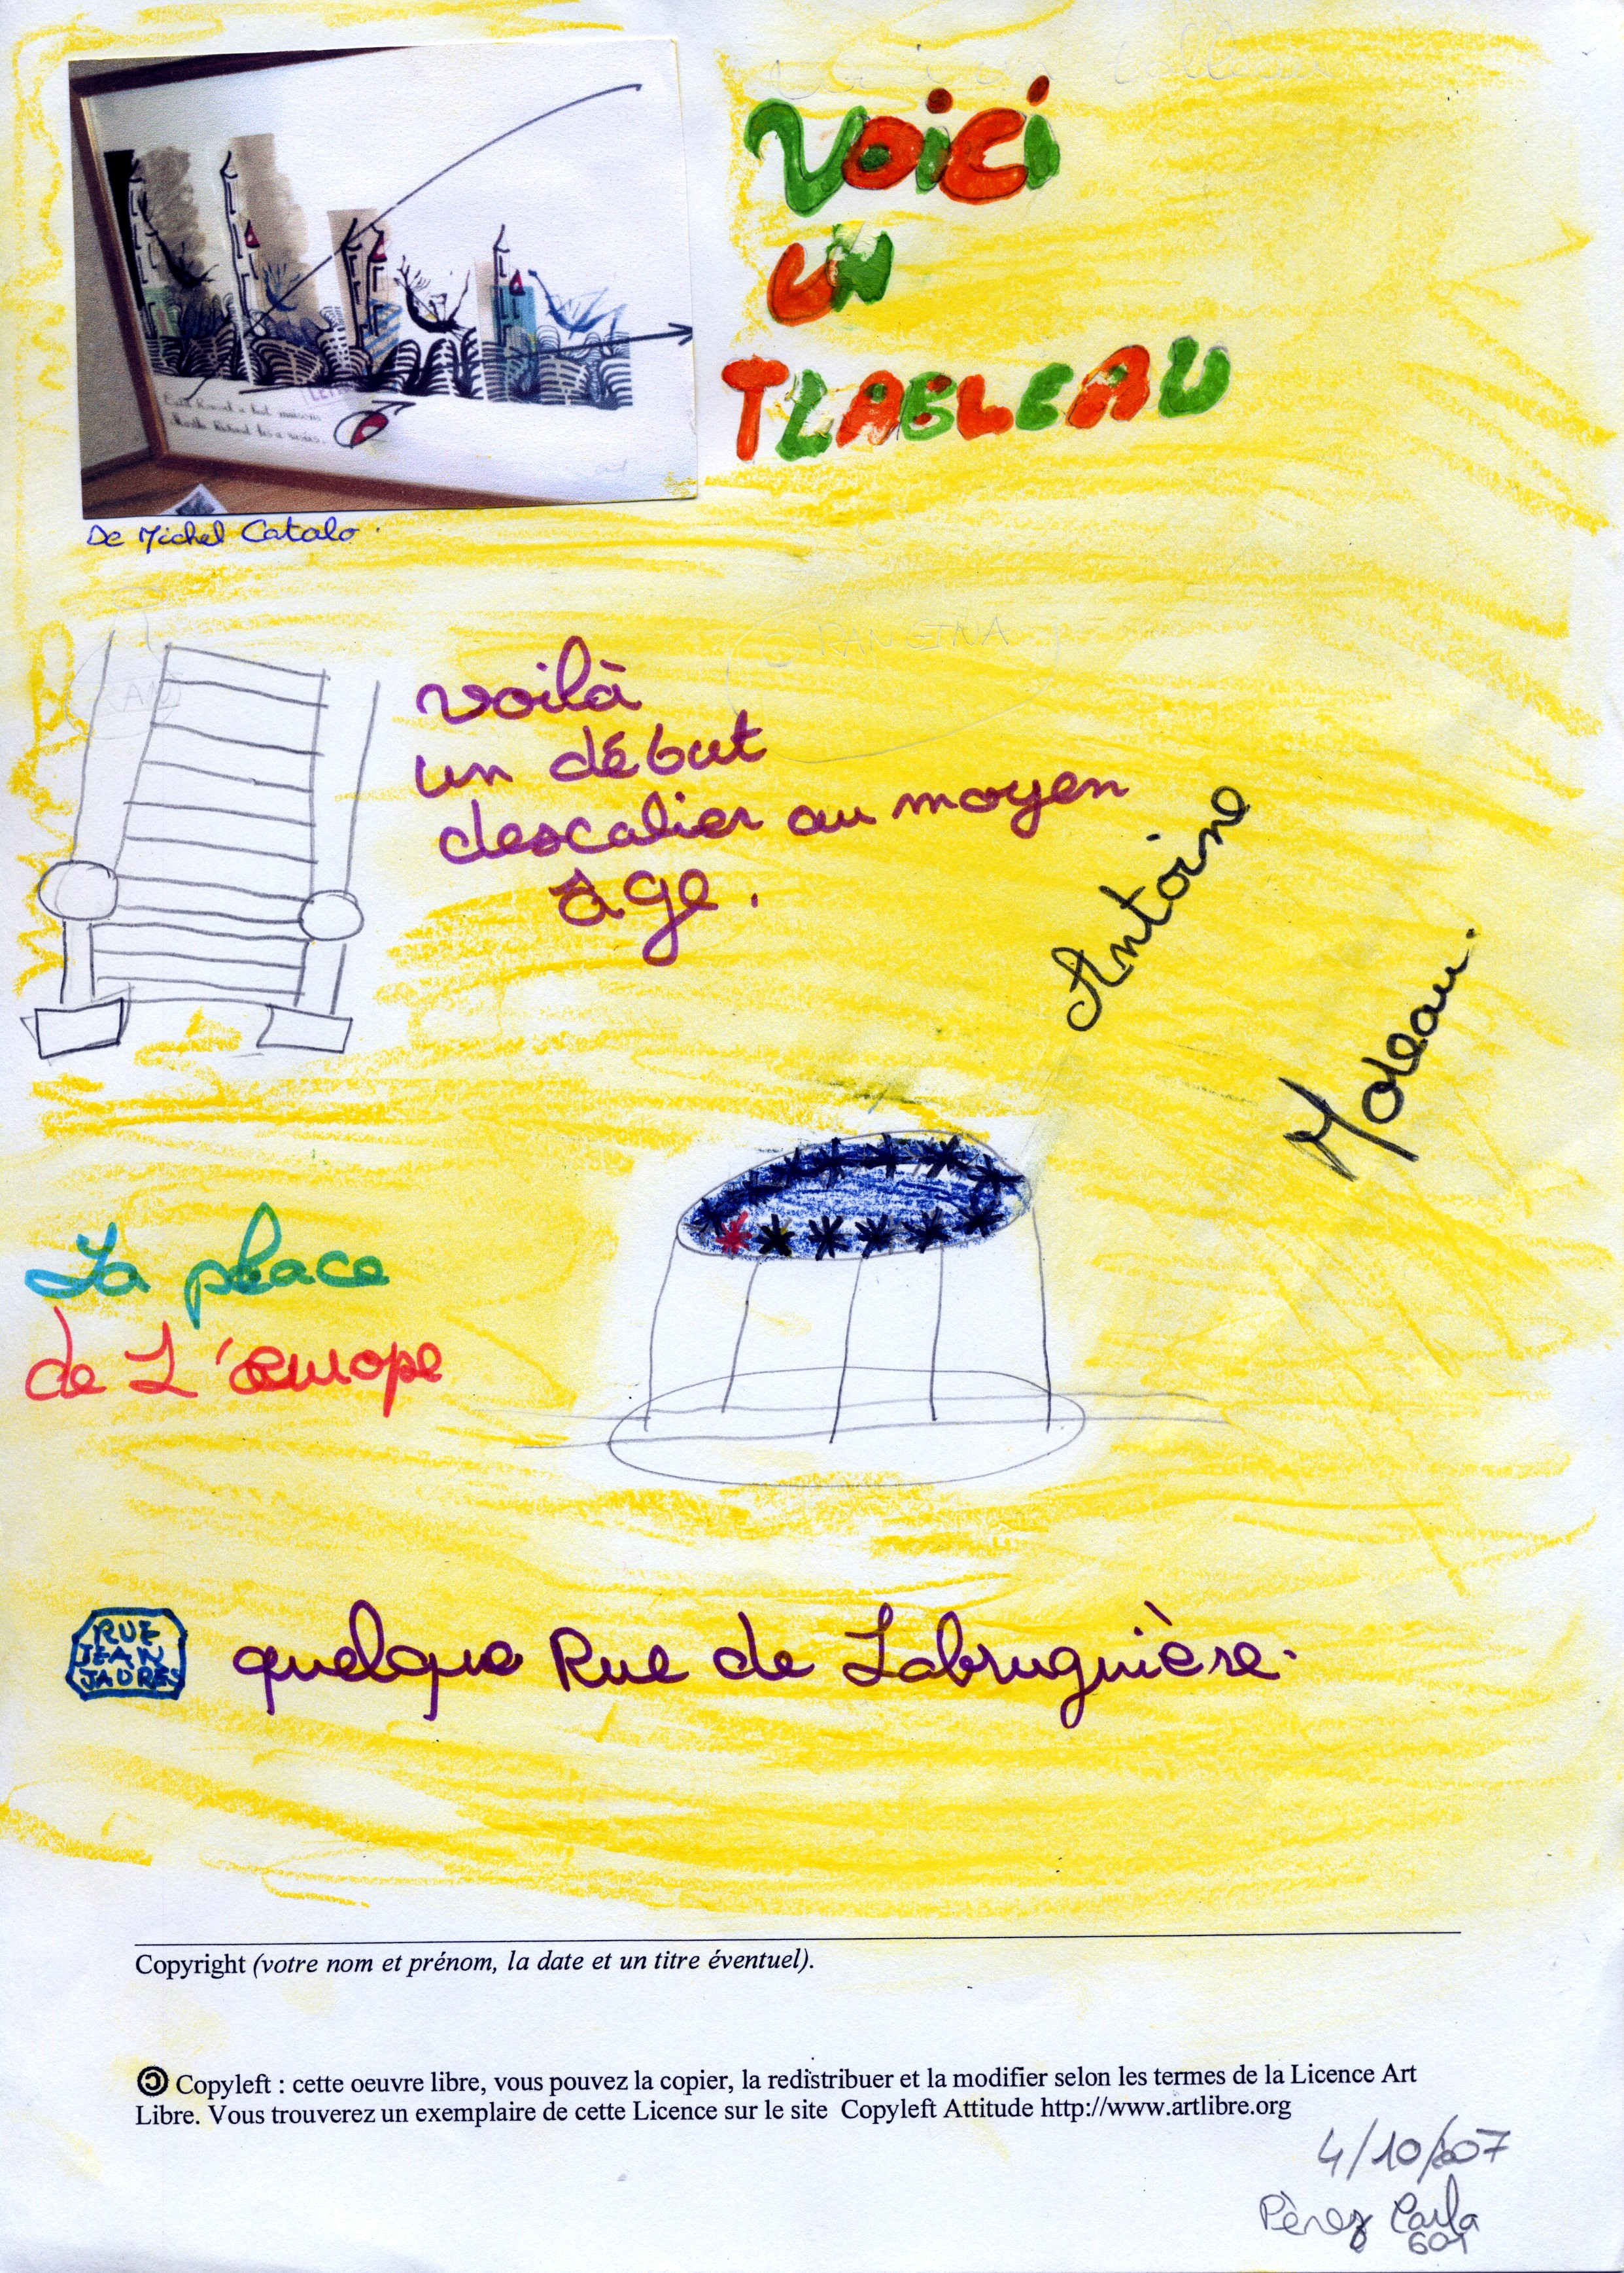 VOiCi
UN
TLABLEAU
De Michel Catalo.
voilà
un début
descalier au moyen
âge.
Antoine
Moreau.
La place
de L'œurope
RUE
JEAN
JAURES
quelque Rue de Labruguière.
Copyright (votre nom et prénom, la date et un titre éventuel).
Copyleft : cette oeuvre libre, vous pouvez la copier, la redistribuer et la modifier selon les termes de la Licence Art
Libre. Vous trouverez un exemplaire de cette Licence sur le site Copyleft Attitude http://www.artlibre.org
4/10/2007
Pèrez Carla
601